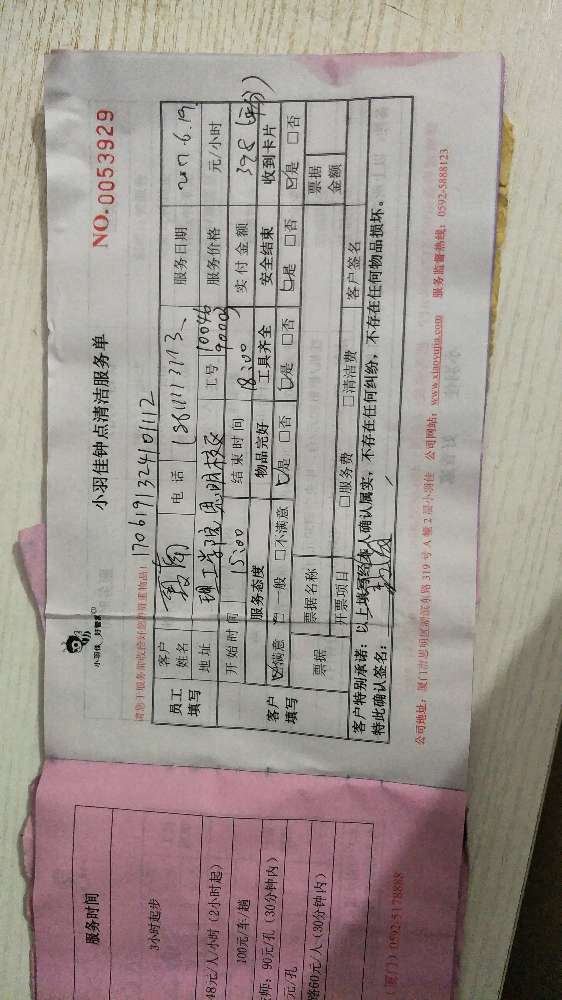 小羽佳 好管家
小羽佳钟点清洁服务单
NO. 0053929
请您于服务前收捡好您的贵重物品!
170619132410112
员工填写
客户姓名
电话
服务日期 2017.6.19
地址 理工学院思明校区
工号 10046
90003
服务价格 元/小时
开始时间 15:00
结束时间 18:00
实付金额 398
客户填写
服务态度 物品完好 工具齐全 安全结束 收到卡片
☑满意 □一般 □不满意 ☑是 □否 ☑是 □否 ☑是 □否 ☑是 □否
票据 票据名称 票据金额
开票项目 □服务费 □清洁费 客户签名
客户特别承诺：以上填写经本人确认属实，不存在任何纠纷，不存在任何物品损坏。
特此确认签名：
公司地址：厦门市思明区湖滨东路 319 号 A 幢 2 层小羽佳 公司网站：www.xiaoyujia.com 服务监督热线：0592-5888123
服务时间
3小时起步
48元/人/小时（2小时起）
100元/车/趟
师：90元/孔（30分钟内）
元/孔
路60元/人（30分钟内）
厦门）0592-5178888